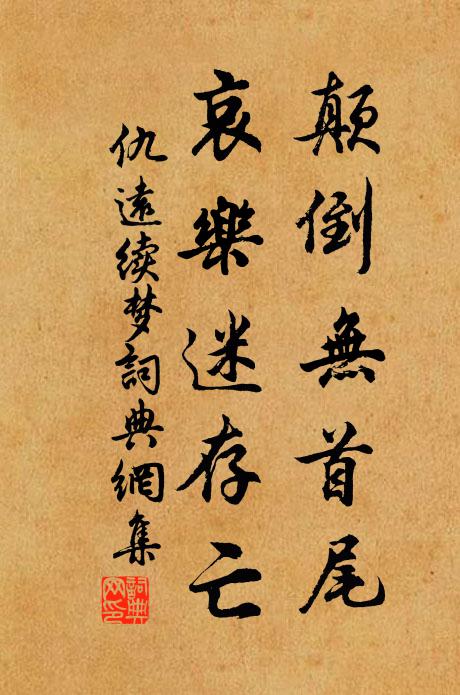 顛倒無首尾
哀樂迷存亡
仇遠續梦詞典網集
詞典网印